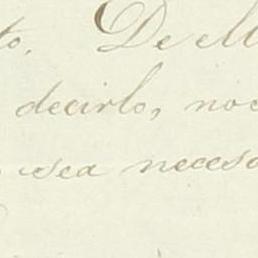 to. De ell
decirlo, noc
sea neces